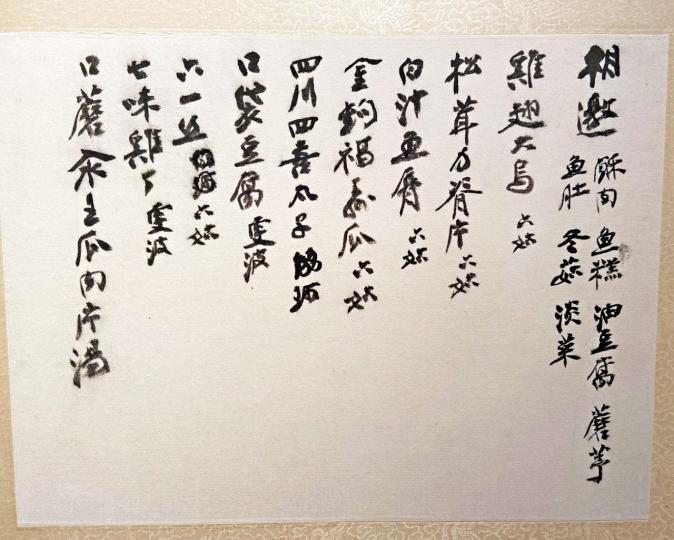 相邀 酥肉 魚糕 油豆腐 蘑芋
魚肚 冬菇 淡菜
雞翅大烏 六妹
松茸刀脊片 六妹
白汁魚唇 六妹
金鈎褐壽瓜 六妹
四川四喜丸子
口袋豆腐 雯波
六一丝 六妹
七味雞丁 雯波
口蘑汆王瓜肉片湯